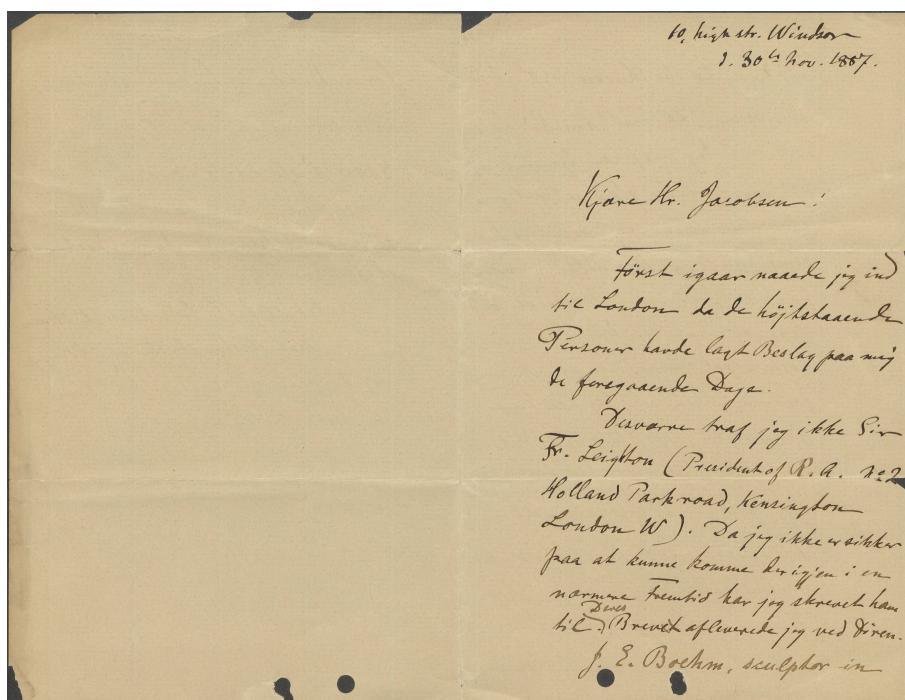 10, high str. Windsor
d. 30th Nov. 1887.
Kjære Hr. Jacobsen!
Først igaar naaede jeg ind
til London da de højtstaaende
Personer havde lagt Beslag paa mig
de foregaaende Dage.
Desværre traf jeg ikke Sir
Fr. Leighton (President of R. A. No 2
Holland Park road, Kensington
London W). Da jeg ikke er sikker
paa at kunne komme der igjen i en
nærmere Fremtid har jeg skrevet ham
til. Deres Brevet afleverede jeg ved Døren.
J. E. Boehm, sculptor in